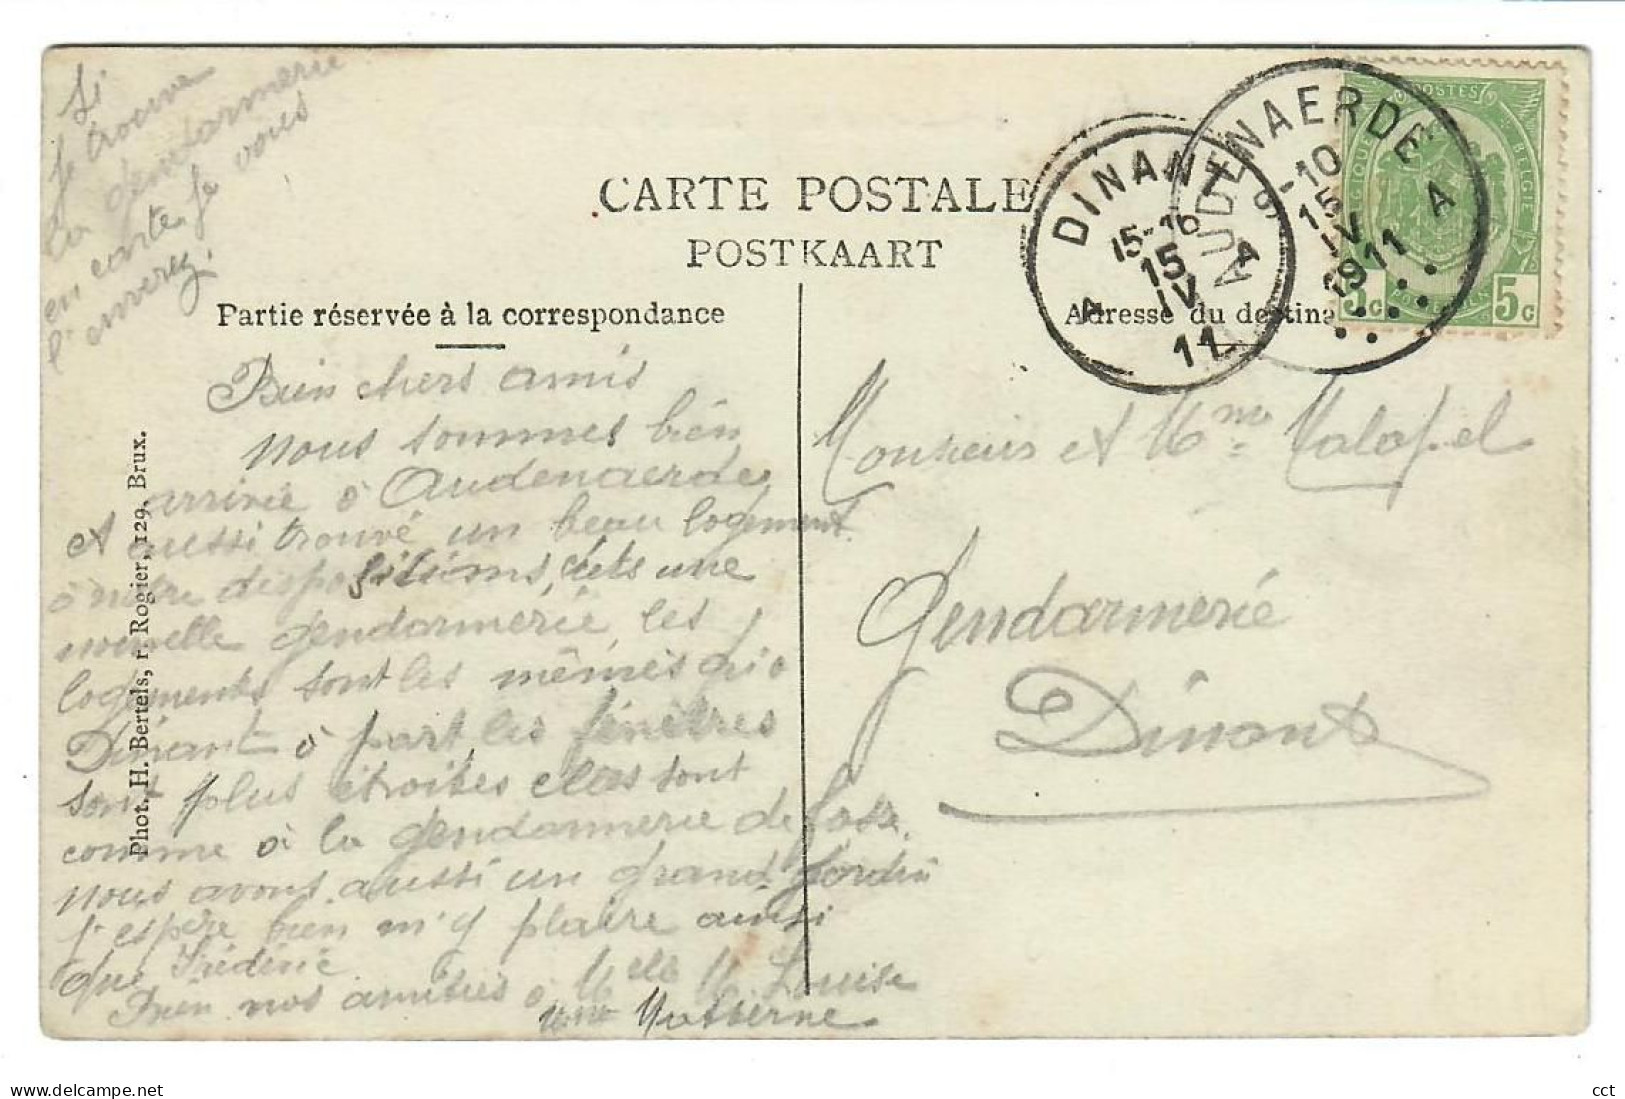 Si
je trouve
la gendarmerie
en carte je vous
l'enverez.
CARTE POSTALE
POSTKAART
Partie réservée à la correspondance
Adresse du destina
DINANT
15-16
15
IV
11
A A
AUDENAERDE
10
15
IV
1911
A
POSTES
BELGIQUE
BELGIE
5c 5c
Bien chers amis
nous sommes bien
arrivée à Audenaerde
et aussi trouvé un beau logement
à notre dispositions, cets une
nouvelle gendarmerie, les
logements sont les mêmes qu'a
Dinant à part les fenêtres
sont plus étroites elles sont
comme à la gendarmerie de fosse.
nous avons aussi un grand jardin
j'espère bien m'y plaire ainsi
que Frédéric
Bien nos amitiés à Melle M. Louise
Mme
Phot. H. Bertels, r. Rogier, 129, Brux.
Monsieur et Mme
Gendarmerie
Dinant
cct